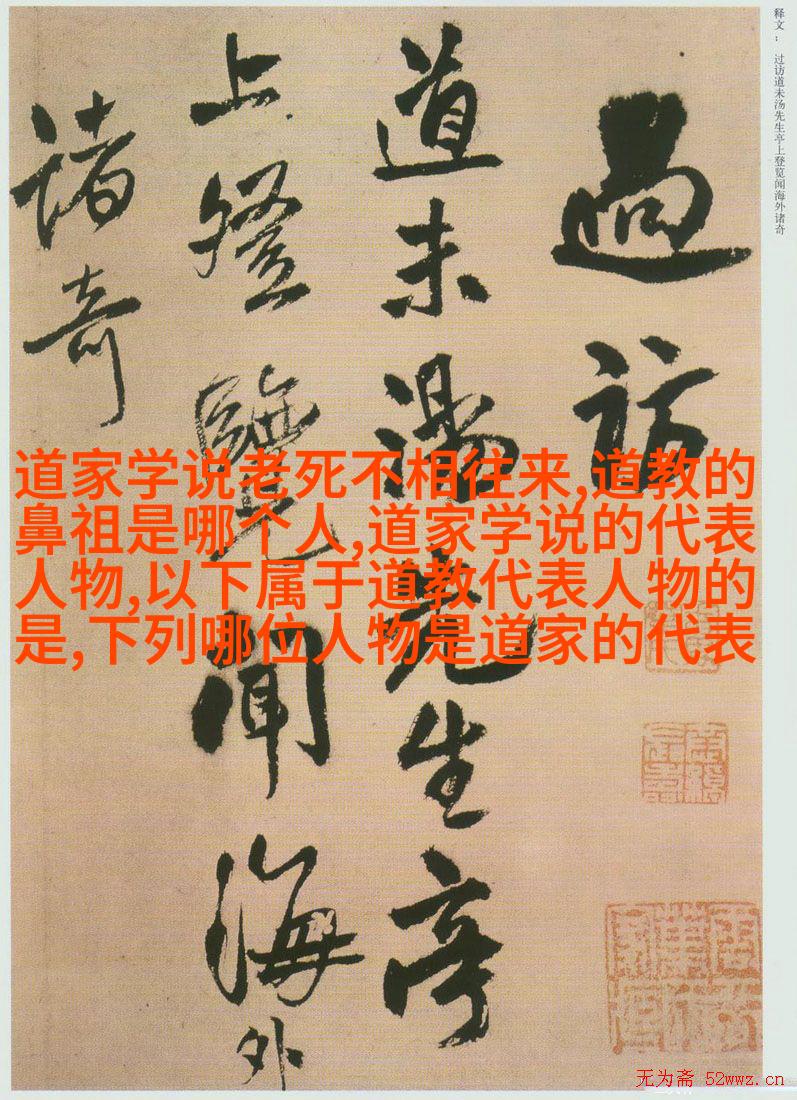 释文：过访道未汤先生亭上登览闻海外诸奇
過訪
道未湯先生亭
上登覽聞海外
諸奇
道家学说老死不相往来,道教的
鼻祖是哪个人,道家学说的代表
人物,以下属于道教代表人物的
是,下列哪位人物是道家的代表
无为斋 52wwz.cn